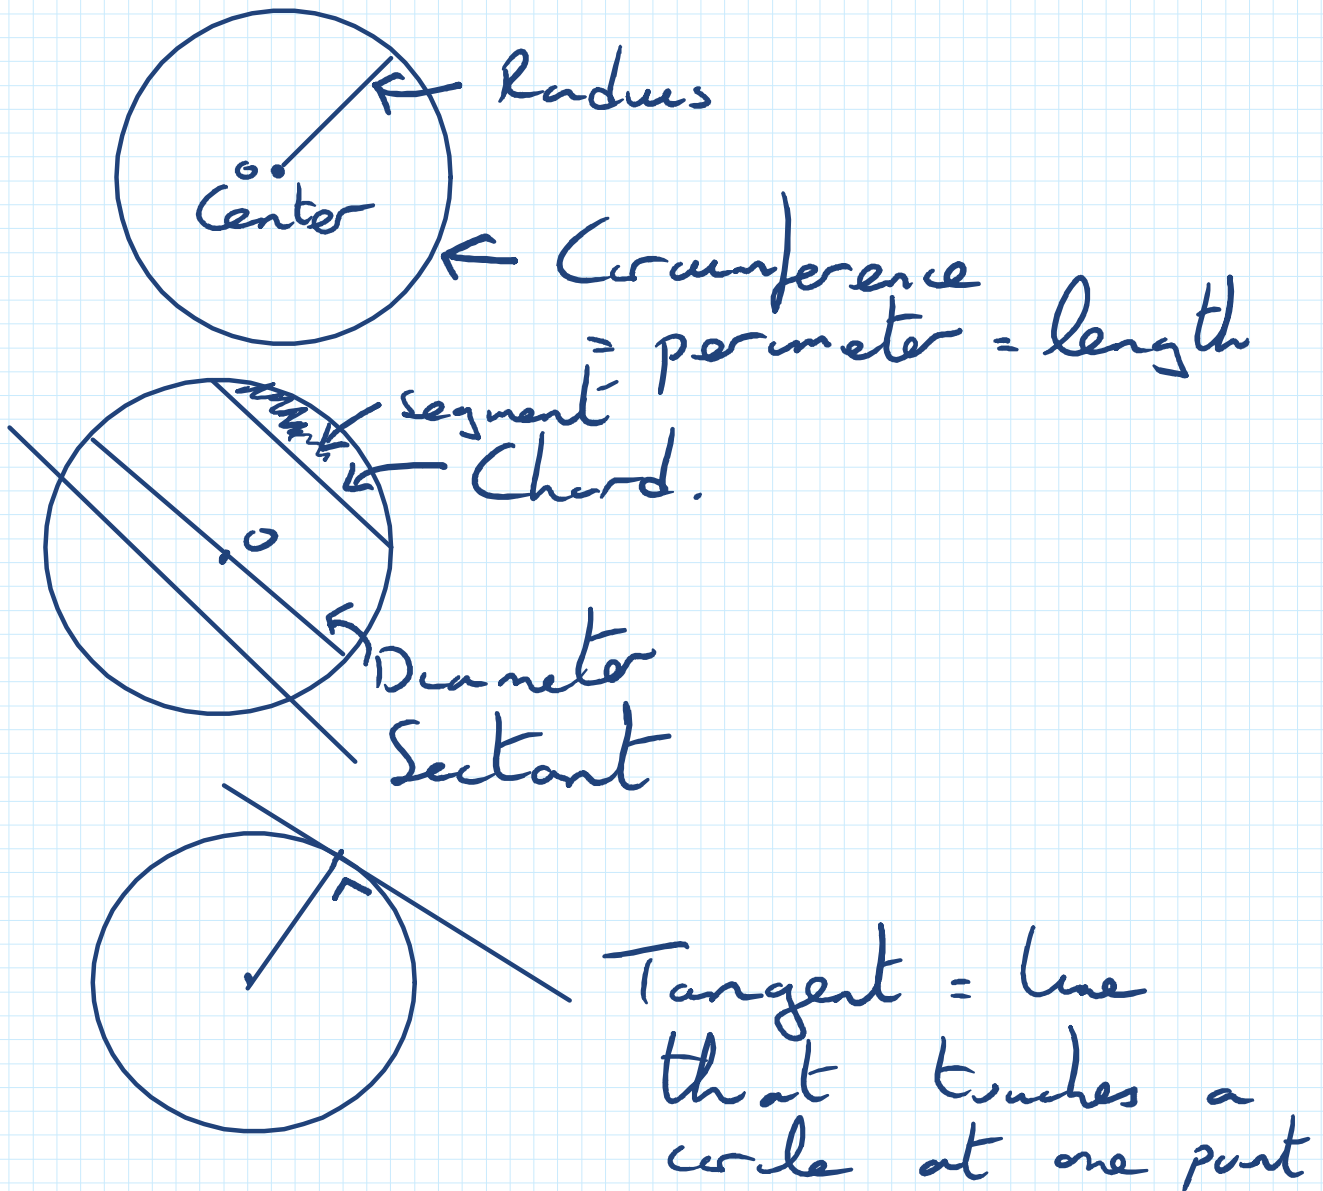 Radius
O
Center
Circumference
= perimeter = length
segment
Chord.
O
Diameter
Sectant
Tangent = line
that touches a
circle at one point